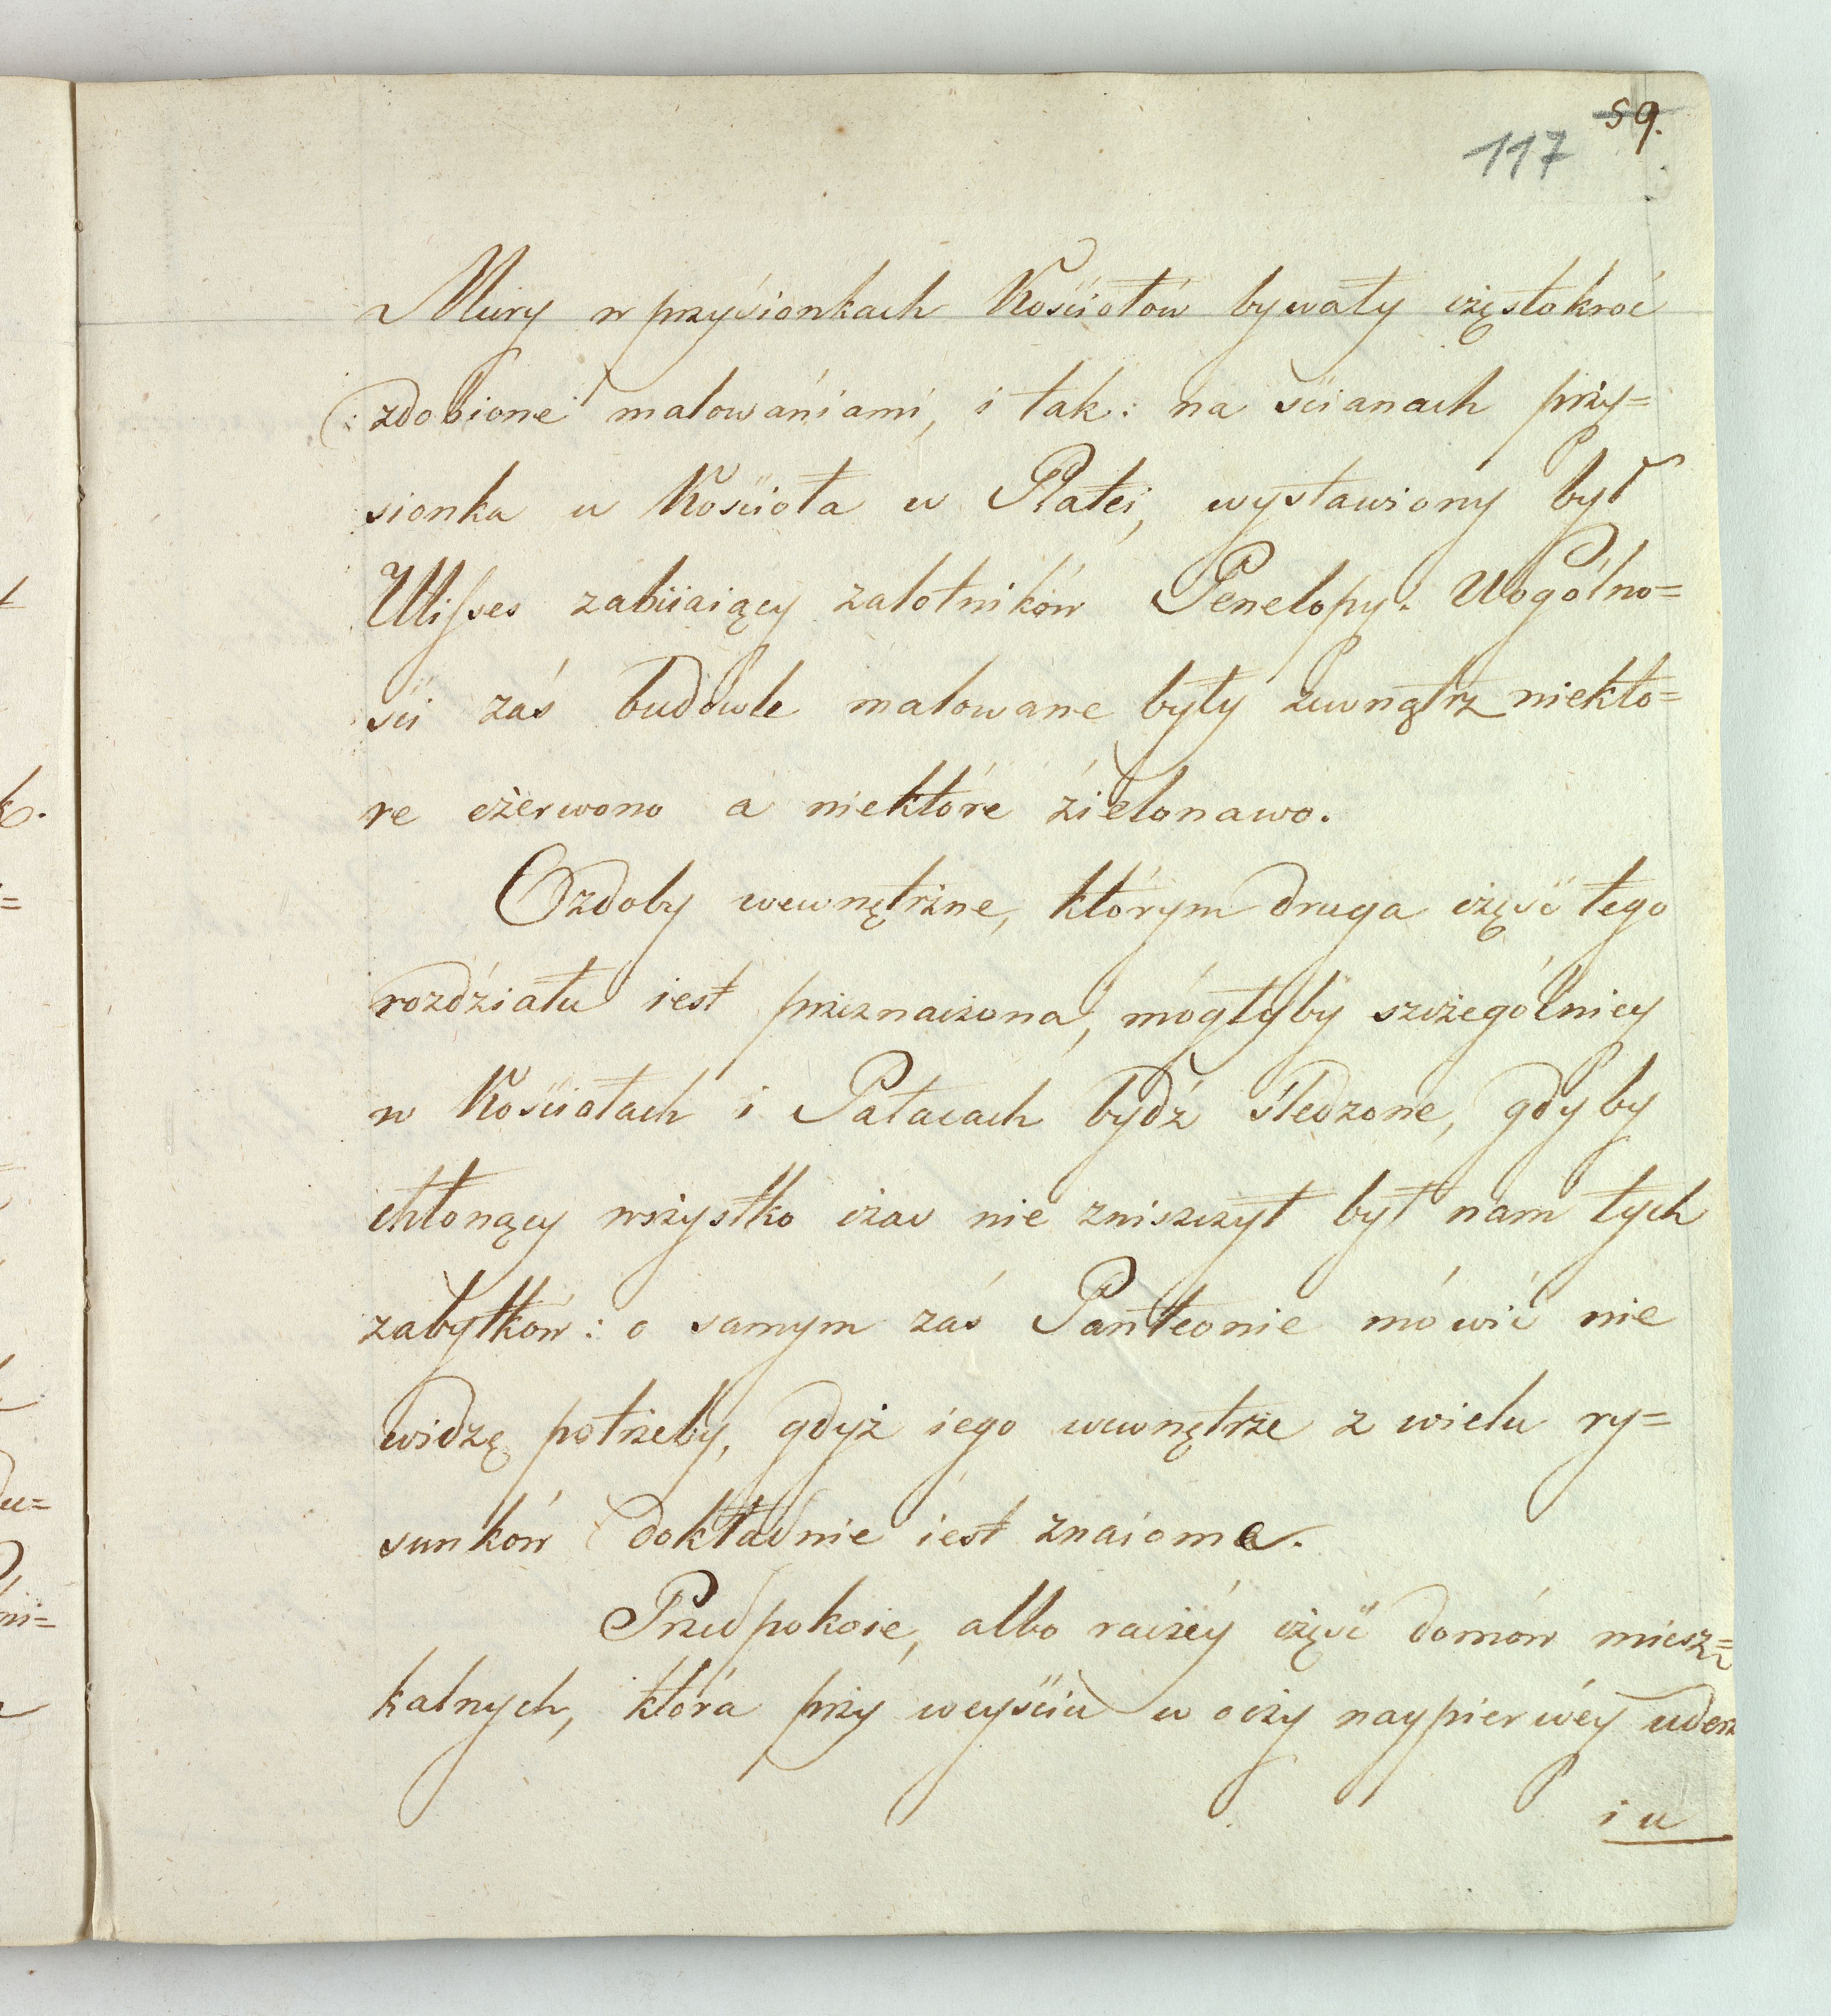 59.
117
Mury w przysionkach Kościołów bywały częstokroć
zdobione malowaniami, i tak: na ścianach przy=
sionka u Kościoła w Platei, wystawiony był
Ulisses zabiiaiący zalotników Penelopy. Wogólno=
ści zaś budowle malowane były zewnątrz niektó=
re czerwono a niektóre zielonawo.
Ozdoby wewnętrzne, którym druga część tego
rozdziału iest przeznaczona, mogłyby szczególniey
w Kościołach i Pałacach bydź śledzone, gdyby
chłonący wszystko czas nie zniszczył był nam tych
zabytków: o samym zaś Panteonie mówić nie
widzę potrzeby, gdyż iego wewnętrze z wielu ry=
sunków dokładnie iest znaiome.
Przedpokoie, albo raczéy część domów miesz=
kalnych, która przy weyściu w oczy naypierwéy uderz
i u